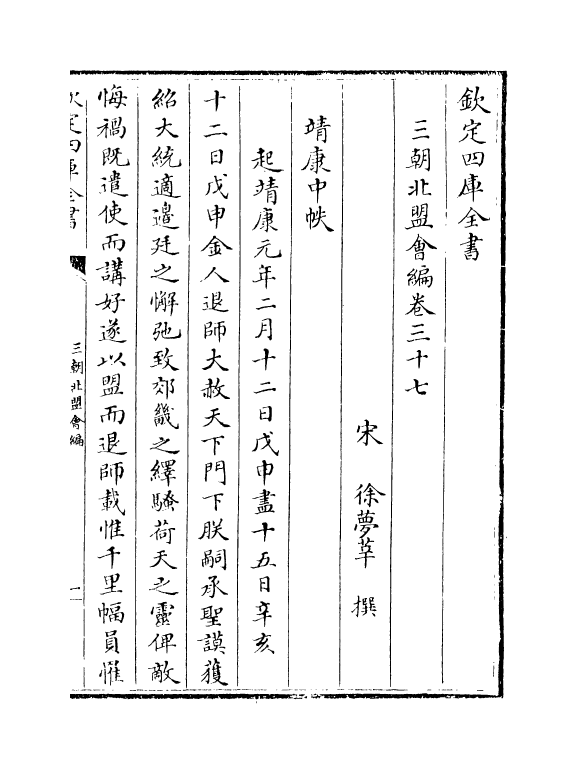 欽定四庫全書
三朝北盟會編卷三十七
宋 徐夢莘 撰
靖康中帙
起靖康元年二月十二日戊申盡十五日辛亥
十二日戊申金人退師大赦天下門下朕嗣承聖謨獲
紹大統適邉廷之懈弛致郊畿之繹騷荷天之靈俾敵
悔禍既遣使而講好遂以盟而退師載惟千里幅員惟
欽定四庫全書
三朝北盟會編
一